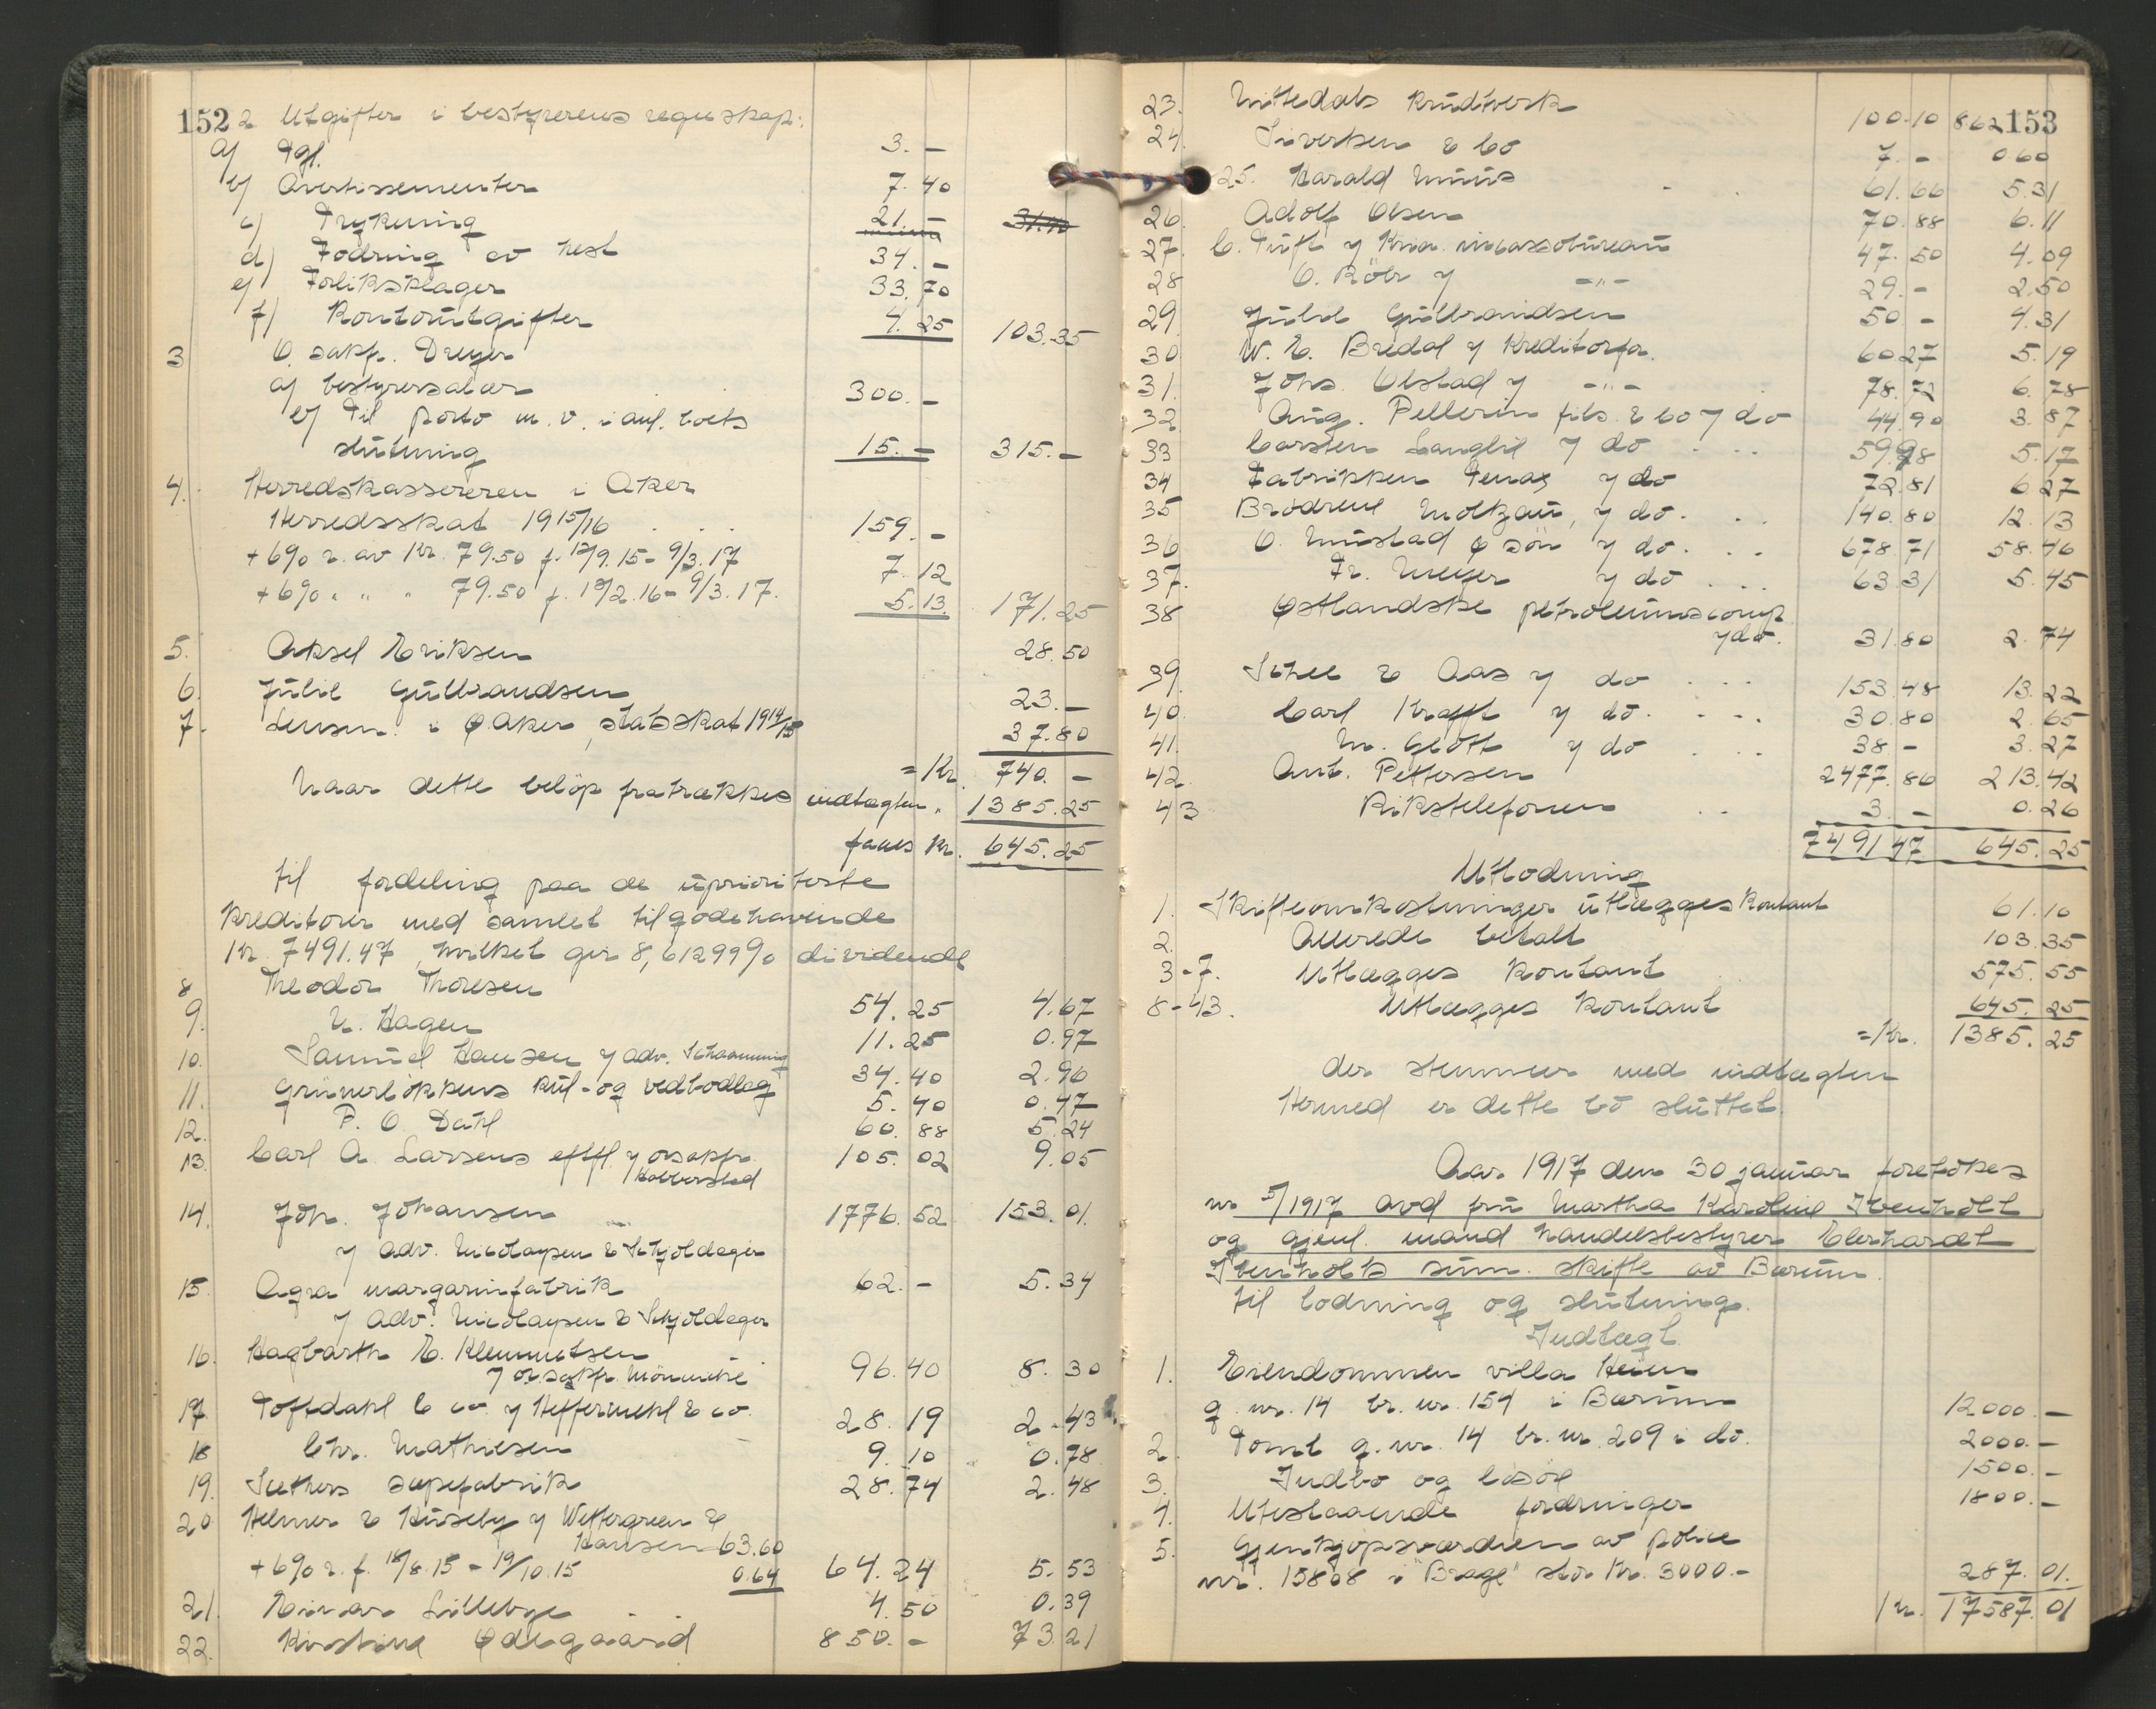 152
2 Utgifter i bestyrerens regnskap:
a) Tgf. 3.-
b) Avertissementer 7.40
c) Trykning 21.- 31.40
d) Fodring av hest 34.-
e) Forliksklager 33.70
f) Kontorutgifter 4.25 103.35
3 O. sakf. Dreyer
a) bestyrersalær 300.-
b) Til porto m.v. i anl. boets
slutning 15.- 315.-
4. Herredskassereren i Aker
Herredsskat 1915/16 . . . 159.-
+ 6% r. av Kr. 79.50 f. 12/9.15 - 9/3.17 7.12
+ 6% " " " 79.50 f. 12/2.16 - 9/3.17. 5.13 171.25
5. Aksel Eriksen 28.50
6. Julie Gulbrandsen 23.-
7. Lensm. i Ø. Aker, statsskat 1914/15 37.80
= Kr. 740.-
Naar dette beløp fratrækkes indtægten " 1385.25
faaes Kr. 645.25
til fordeling paa de uprioriterte
kreditorer med samlet tilgodehavende
Kr. 7491.47, hvilket gir 8,61299% dividende
8 Theodor Thoresen 54.25 4.67
9. N. Hagen 11.25 0.97
10. Samuel Hansen v/ adv. Schaanning 34.40 2.96
11. Grünerløkkens kul- og vedbodlag 5.40 0.47
12. P. O. Dahl 60.88 5.24
13. Carl A. Larsens eftfl. v/ o.r.sakf.
Halvorsted 105.02 9.05
14. Joh. Johansen 1776.52 153.01
v/ adv. Nicolaysen & Schjoldager
15. Agra margarinfabrik 62.- 5.34
v/ adv. Nicolaysen & Schjoldager
16. Hagbarth E. Klemmetsen
v/ o.r.sakf. 96.40 8.30
17. Toftdahl & co. v/ Heffermehl & co. 28.19 2.43
18 Chr. Mathiesen 9.10 0.78
19. Sæthers sæpefabrik 28.74 2.48
20 Helmer & Huseby v/ Wettergreen &
Hansen 63.60
+ 6% r. f. 18/8.15 - 19/10.15 0.64 64.24 5.53
21. Einar Lillebye 4.50 0.39
22. Kirstine Ødegaard 850.- 73.21
153
23. Nittedals Krudtverk 100.10 8.62
24. Siversen & Co 7.- 0.60
25. Harald Muus 61.66 5.31
26. Adolf Olsen 70.88 6.11
27. C. Tuft v/ Kria. incassobureau 47.50 4.09
28 O. Röbr v/ -"- 29.- 2.50
29. Julie Gulbrandsen 50 - 4.31
30 W. E. Bredal v/ Kreditorfor. 60.27 5.19
31. Johs. Olstad v/ -"- 78.72 6.78
32 Aug. Pellerin fils & co v/ do 44.90 3.87
33 Carsten Langlil v/ do . . . 59.98 5.17
34 Fabrikken Tenax v/ do 72.81 6.27
35 Brødrene Moltzau, v/ do. . . 140.80 12.13
36 O. Mustad & søn v/ do. . . 678.71 58.46
37. Fr. Meyer v/ do . . . 63.31 5.45
38 Østlandske petroleumscomp.
v/do. 31.80 2.74
39. Schee & Aas v/ do . . . 153.48 13.22
40. Carl Krafft v/ do. . . . 30.80 2.65
41. M. Glott v/ do . . . 38 - 3.27
42. Ant. Pettersen 2477.86 213.42
43 Rikstelefonen . . 3.- 0.26
7491.47 645.25
Utlodning
1. Skifteomkostninger utlægges kontant 61.10
2. Allerede betalt 103.35
3-7. Utlægges kontant 575.55
8-43. Utlægges kontant 645.25
= Kr. 1385.25
der stemmer med indtægten
Hermed er dette bo sluttet.
Aar 1917 den 30 januar foretokes
nr 5/1917 avd. fru Martha Karoline Ibenholt
og gjenl. mand handelsbestyrer Eberhardt
Ibenholts sum. skifte av Bærum.
til lodning og slutning.
Indtægt
1. Eiendommen villa Heim
g. nr. 14 br. nr. 154 i Bærum 12000.-
2. Tomt g. nr. 14 br. nr. 209 i do. 2000.-
3. Indbo og løsøre 1500.-
4. Utestaaende fordringer 1800.-
5. Gjenkjøpsværdien av police
nr. 15808 i "Brage" stor Kr. 3000.- 287.01.
Kr. 17587.01